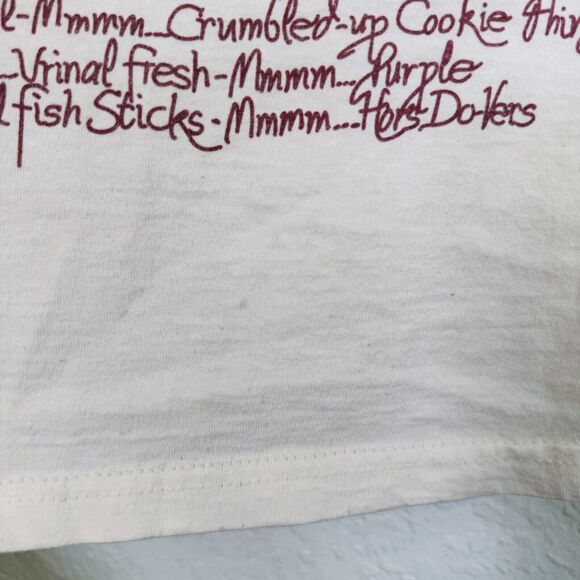 l-Mmmm...Crumbled-up Cookie thin
...Urinal fresh-Mmmm...Purple
fish Sticks-Mmmm...Hors-Do-Vers